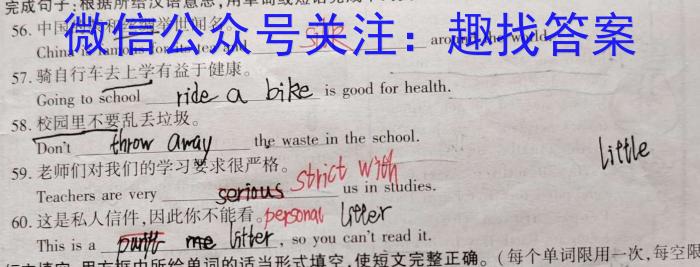 完成句子:根据所给汉语意思,用单词或短语完成
56. 中国 举世闻名。
微信公众号关注：趣找答案
China around the world.
57. 骑自行车去上学有益于健康。
Going to school ride a bike is good for health.
58. 校园里不要乱丢垃圾。
Don't throw away the waste in the school.
little
59. 老师们对我们的学习要求很严格。
strict with
Teachers are very serious us in studies.
60. 这是私人信件,因此你不能看。personal litter
This is a me litter, so you can't read it.
用方框中所给单词的适当形式填空,使短文完整正确。(每个单词限用一次,每空限